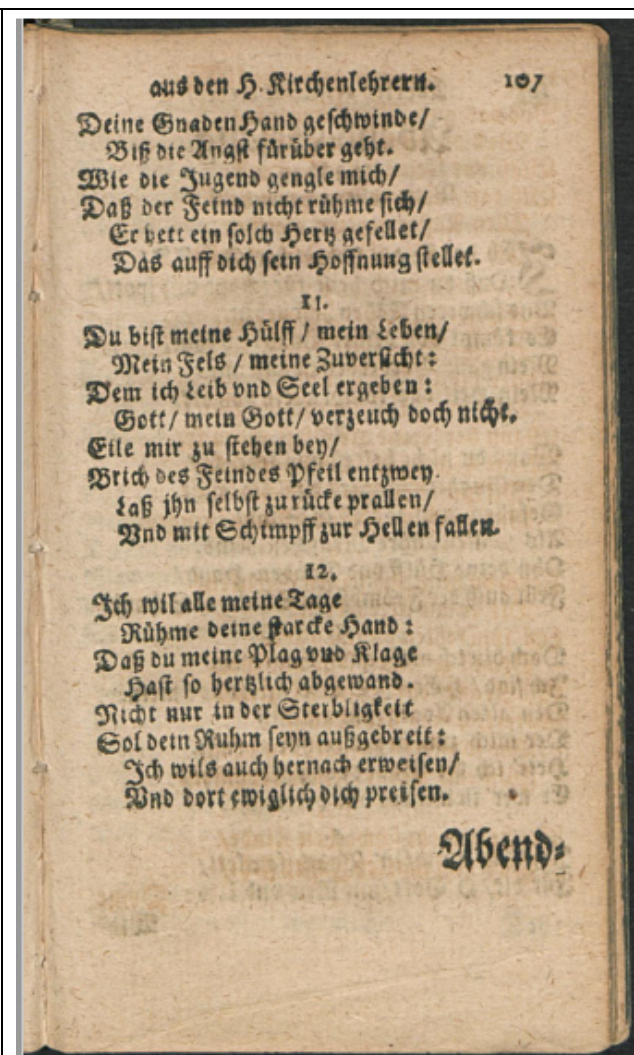 aus den H. Kirchenlehrern. 107
Deine Gnaden Hand geschwinde/
Biß die Angst fürüber geht.
Wie die Jugend gengle mich/
Daß der Feind nicht rühme sich/
Er hett ein solch Hertz gefellet/
Das auff dich sein Hoffnung stellet.
11.
Du bist meine Hülff / mein Leben/
Mein Fels / meine Zuversicht:
Dem ich Leib vnd Seel ergeben:
Gott/ mein Gott/ verzeuch doch nicht.
Eile mir zu stehen bey/
Brich des Feindes Pfeil entzwey.
Laß jhn selbst zu rücke prallen/
Vnd mit Schimpff zur Hellen fallen.
12.
Ich wil alle meine Tage
Rühme deine starcke Hand:
Daß du meine Plag vnd Klage
Hast so hertzlich abgewand.
Nicht nur in der Sterbligkeit
Sol dein Ruhm seyn außgebreit:
Ich wils auch hernach erweisen/
Vnd dort ewiglich dich preisen.
Abend-